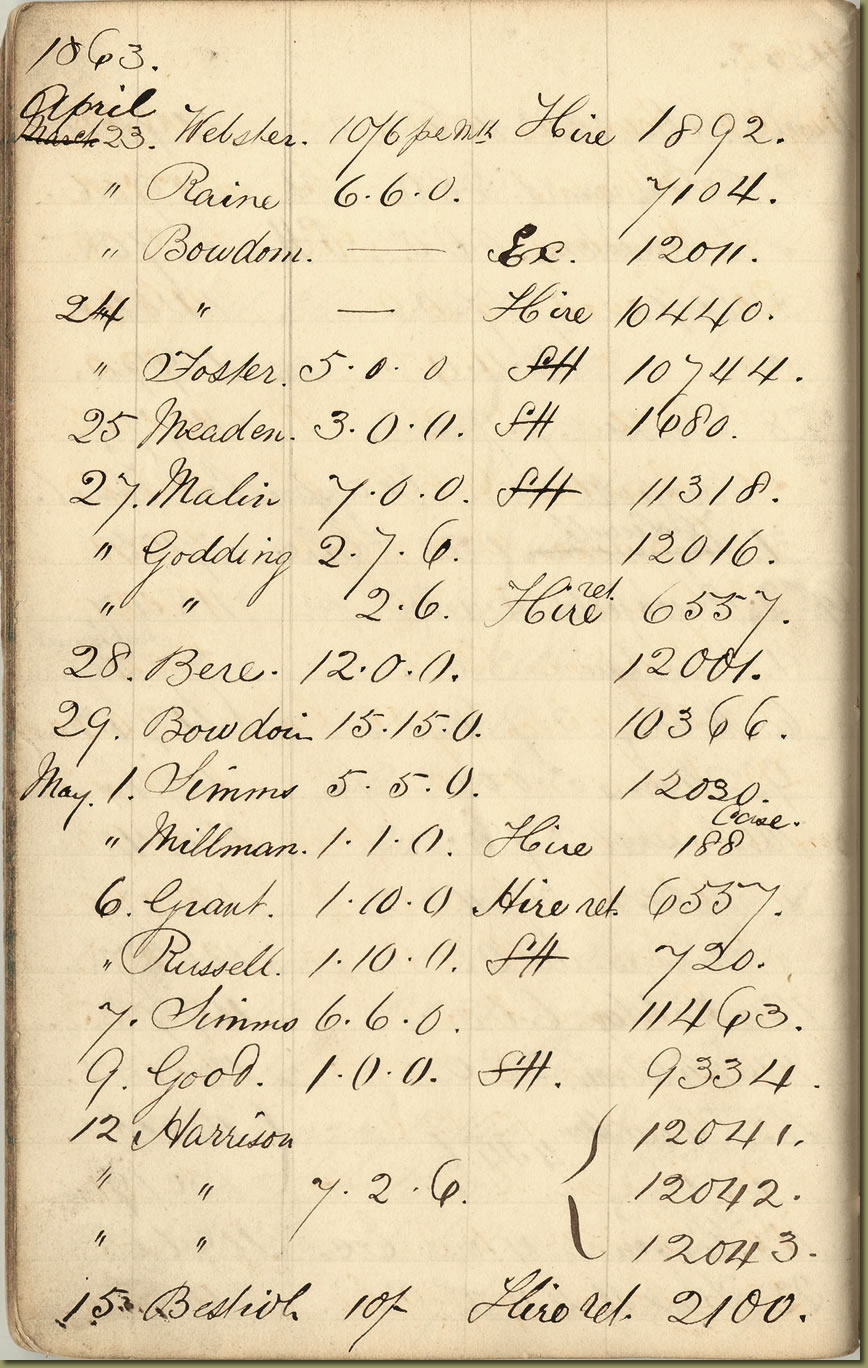 1863.
April
March 23. Webster. 10/6 per Mth Hire 1892.
" Raine 6.6.0. 7104.
" Bowdom. — Ex. 12011.
24 " — Hire 10440.
" Foster. 5.0.0 SH 10744.
25 Meaden. 3.0.0. SH 1680.
27. Malin 7.0.0. SH 11318.
" Godding 2.7.6. 12016.
" " 2.6. Hire ret. 6557.
28. Bere. 12.0.0. 12001.
29. Bowdoin 15.15.0. 10366.
May. 1. Simms 5.5.0. 12030.
" Millman. 1.1.0. Hire 188 Case.
6. Grant. 1.10.0 Hire ret. 6557.
" Russell. 1.10.0. SH 720.
7. Simms 6.6.0. 11463.
9. Good. 1.0.0. SH. 9334.
12 Harrison 12041.
" " 7.2.6. 12042.
" " 12043.
15. 10/- Hire ret. 2100.